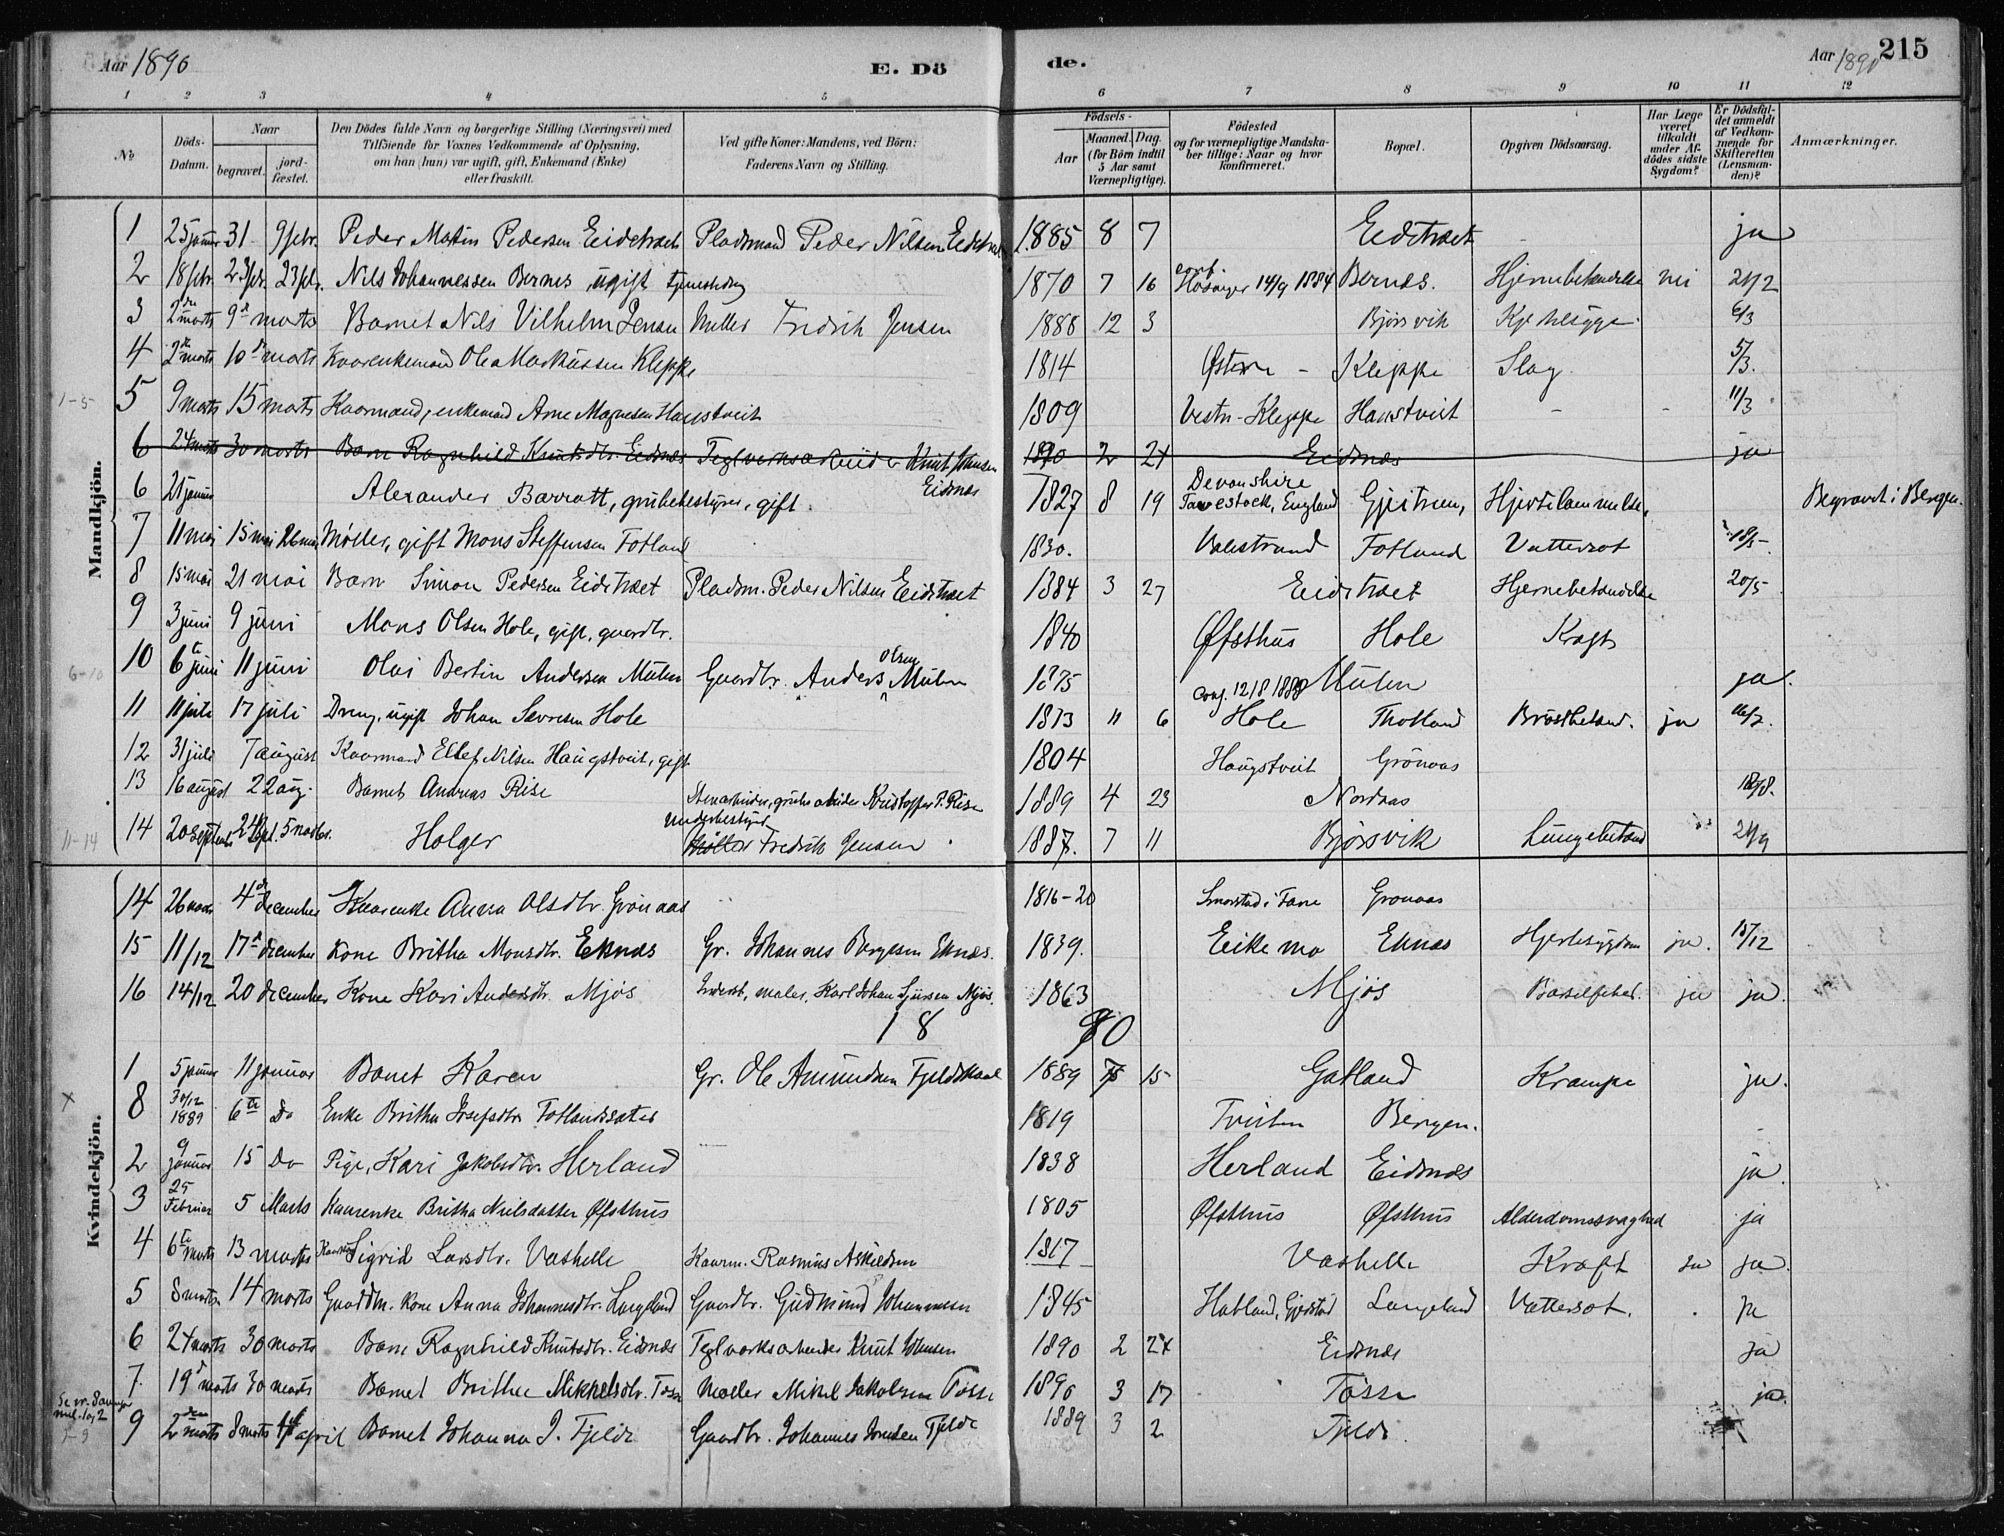 Aar 1890 E. Dö de. Aar 1890 215
1 2 3 4 5 6 7 8 9 10 11 12
No. Döds-Datum. Naar begravet. jord-fæstet. Den Dödes fulde Navn og borgerlige Stilling (Næringsvei) med Tilföiende for Voxnes Vedkommende af Oplysning, om han (hun) var ugift, gift, Enkemand (Enke) eller fraskilt. Ved gifte Koner: Mandens, ved Börn: Faderens Navn og Stilling. Födsels- Aar Maaned. Dag. (for Börn indtil 5 Aar samt Værnepligtige). Födested og for værnepligtige Mandskaber tillige: Naar og hvor konfirmeret. Bopæl. Opgiven Dödsaarsag. Har Læge været tilkaldt under Afdödes sidste Sygdom? Er Dödsfaldet anmeldt af Vedkommende for Skifteretten (Lensmanden)? Anmærkninger.
Mandkjön.
1 25 januar 31 9 febr. Peder Martin Pedersen Eidstræet Pladsmand Peder Nilsen Eidstræet 1885 8 7 Eidstræet ja
2 18 febr. 23 febr. 23 febr. Nils Johannessen Bernes, ugift 1870 7 16 conf. Hosanger 14/9 1884 Bernæs. Hjernebetændelse nei 24/2
3 2den marts 9de marts Barnet Nils Vilhelm Jensen Møller Fredrik Jensen 1888 12 3 Bjørsvik 6/3
4 2den marts 10de marts Kaarenkemand Ole Markussen Kleppe 1814 Østre - Kleppe Slag 5/3.
1-5
5 9 marts 15 marts Kaarmand, enkemand Arne Magnesen Haustveit 1809 Vestre-Kleppe Haustveit - - 11/3
6 24 marts 30 marts Barn Ragnhild Knutsdtr. Eidsnæs Teglverksarbeider Knut Johnsen Eidsnæs 1890 2 24 Eidsnæs ja
6 21 januar Alexander Barratt, grubebestyrer, gift. 1827 8 19 Devonshire Tavestock, England Gjeitrem, Hjertelammelse, Begravet i Bergen.
7 11 mai 15 mai 26 mai Møller, gift Mons Steffensen Fotland 1830. Balestrand Fotland Vattersot 18/5
8 15 mai 21 mai Barn Simon Pedersen Eidstræet Pladsm. Peder Nilsen Eidstræet 1884 3 27 Eidstræet Hjernebetændelse 20/5
9 3 juni 9 juni Mons Olsen Hole, gift, gaardbr. 1840 Øfsthus Hole Kræft
6-10
10 6te juni 11 juni Olai Bertin Andersen Mulen Gaardbr. Anders Olsen Mulen 1875 Mulen ja.
11 11 juli 17 juli Dreng, ugift Johan Sævresen Hole 1873 11 6 conf. 12/8 1888 Hole Thotland Brystbetænd. ja 16/7.
12 31 juli 7 august Kaarmand Ellef Nilsen Haugstveit, gift 1804 Haugstveit Grönaas
13 16 august 22 aug. Barnet Andreas Rise Stenarbeider, grubearbeider Kristopher P. Rise 1889 4 23 Nordaas 18/8.
11-14
14 20 septembr 24 Sept. 5 novbr. Holger Underbestyrer Møller Fredrik Jensen 1887. 7 11 Bjørsvik Lungebetænd 24/9
14 26 novbr 4de december Kaarenke Anna Olsdtr. Grönaas 1816-20 Smørstad i Fane Gronaas
15 11/12 17de december Kone Britha Monsdtr. Eknæs Gr. Johannes Børgesen Eknæs. 1839. Eikemo Eknæs Hjertesygdom ja. 15/12
16 14/12 20 december Kone Kari Andersdtr. Mjös Inderst, maler, Karl Johan Sjursen Mjös. 1863 Mjös Barselfeber. ja ja.
18 90
Kvindekjön.
1 5 januar 11 januar Barnet Karen Gr. Ole Amundsen Fjeldskaal 1889 15 Gatland Krampe ja.
x
8 30/12 1889 6te Do Enke Britha Josefsdtr Fotlandssæter 1819 Tveiten Bergen.
2 9 januar 15 Do Pige, Kari Jakobsdtr. Herland 1838 Herland Eidsnæs ja.
3 25 Februar 5 Marts Kaarenke Britha Nielsdatter Øfsthus 1805 Øfsthus Øfsthus Alderdomssvaghed ja
4 6te marts 13 marts Sigrid Larsdtr. Vashelle Kaarm. Rasmus Askildsen 1817 Vashelle Kræft ja ja.
5 8 marts 14 marts Gaardm. kone Anna Johannesdtr. Langeland Gaardbr. Gudmund Johannesen 1845 Hatland, Gjerstad Langeland Vattersot. ja
6 24 marts 30 marts Barn Ragnhild Knutsdtr. Eidsnæs Teglverksarbeider Knut Johnsen 1890 2 24 Eidsnæs ja
7. 19de marts 30 marts Barnet Brithe Mikkelsdtr. Tosse Møller Mikal Jakobsen Tosse 1890 3 17 Tosse ja.
Se nr. 8 ovenfor mel. 1 og 2
7-9
9 2den marts 8 marts april Barnet Johanna J. Fjelde Gaardbr. Johannes Fjelde 1889 3 2 Fjelde.